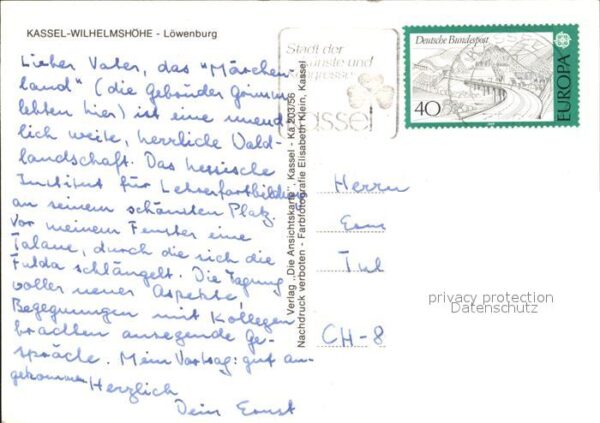 KASSEL-WILHELMSHÖHE - Löwenburg
Lieber Vater, das "Märchen-
land" (die Gebrüder Grimm
lebten hier) ist eine unend-
lich weite, herrliche Wald-
landschaft. Das hessische
Institut für Lehrerfortbildung
an seinem schönsten Platz.
Vor meinem Fenster eine
Talaue, durch die sich die
Fulda schlängelt. Die Tagung
voller neuer Aspekte,
Begegnungen mit Kollegen
brachten anregende Ge-
spräche. Mein Vortrag: gut an-
gekommen Herzlich
Dein Ernst
Verlag „Die Ansichtskarte", Kassel - Ka 203/56
Nachdruck verboten - Farbfotografie Elisabeth Klein, Kassel
Stadt der
Künste und
Kongresse
Kassel
Deutsche Bundespost
40
EUROPA
Herrn
CH-8
privacy protection
Datenschutz